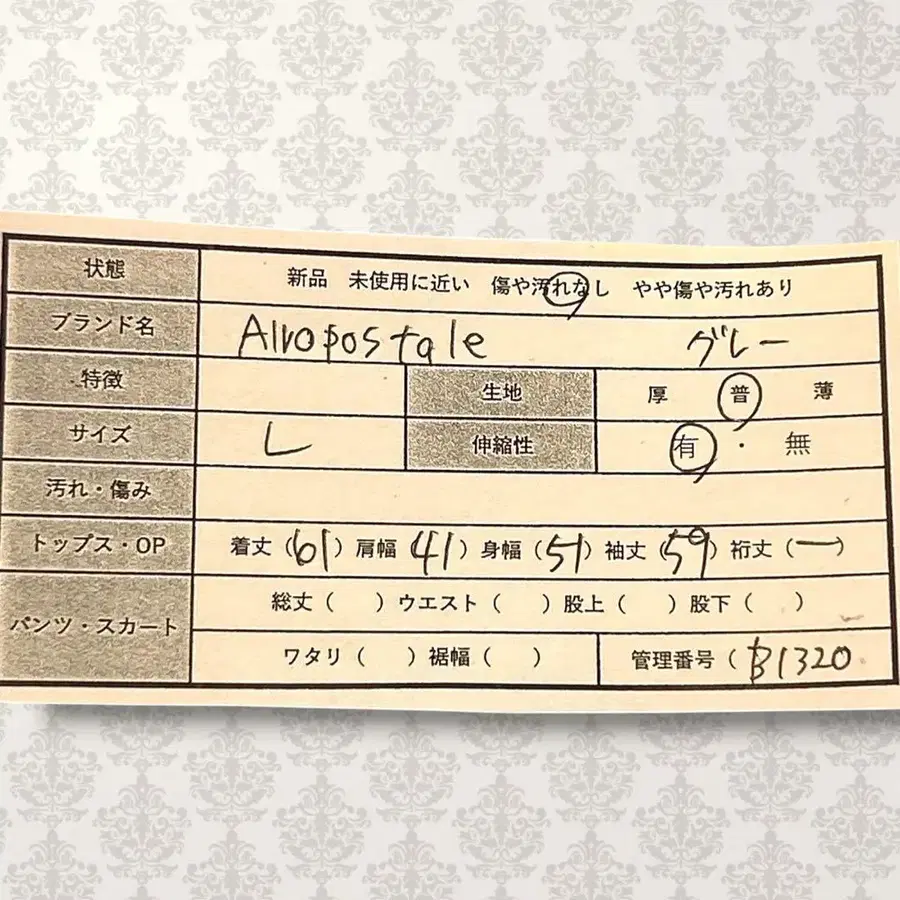 状態 新品 未使用に近い 傷や汚れなし やや傷や汚れあり
ブランド名 Alropostale グレー
特徴 生地 厚 普 薄
サイズ L 伸縮性 有・無
汚れ・傷み
トップス・OP 着丈（61）肩幅 41）身幅（51）袖丈（59）裄丈（ー）
パンツ・スカート 総丈（ ）ウエスト（ ）股上（ ）股下（ ）
ワタリ（ ）裾幅（ ） 管理番号（B1320